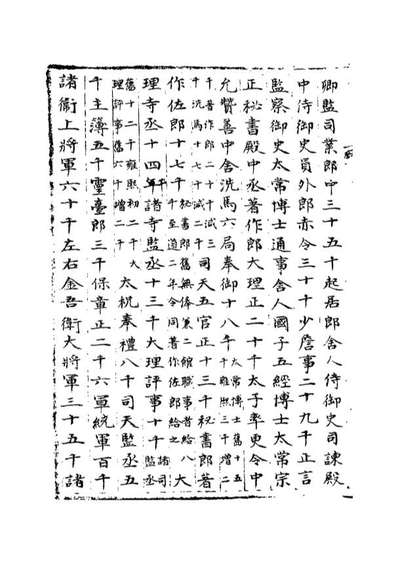 卿監司業郎中三十五千起居郎舍人侍御史司諫殿
中侍御史員外郎赤令三十千少詹事二十九千正言
監察御史太常博士通事舍人國子五經博士太常宗
正秘書殿中丞著作郎大理正二十千太子率更令中
允贊善中舍洗馬六局奉御十八千太常博士舊十五千雍熙三千增二
千著作郎二十千減三千洗馬十七千減二千司天五官正十三千秘書郎著
作佐郎十七千秘書郎舊無俸兼三館職事者給八千至道二年令同著作佐郎給之大
理寺丞十四年諸寺監丞十三千大理評事十千諸司監丞
舊十二千雍熙初二千大理評事舊六千增二千太祝奉禮八千司天監丞五
千主簿五千靈臺郎三千保章正二千六軍統軍百千
諸衛上將軍六十千左右金吾衛大將軍三十五千諸